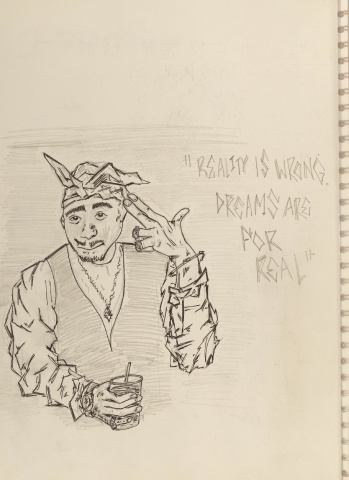 "REALITY IS WRONG.
DREAMS ARE
FOR
REAL"